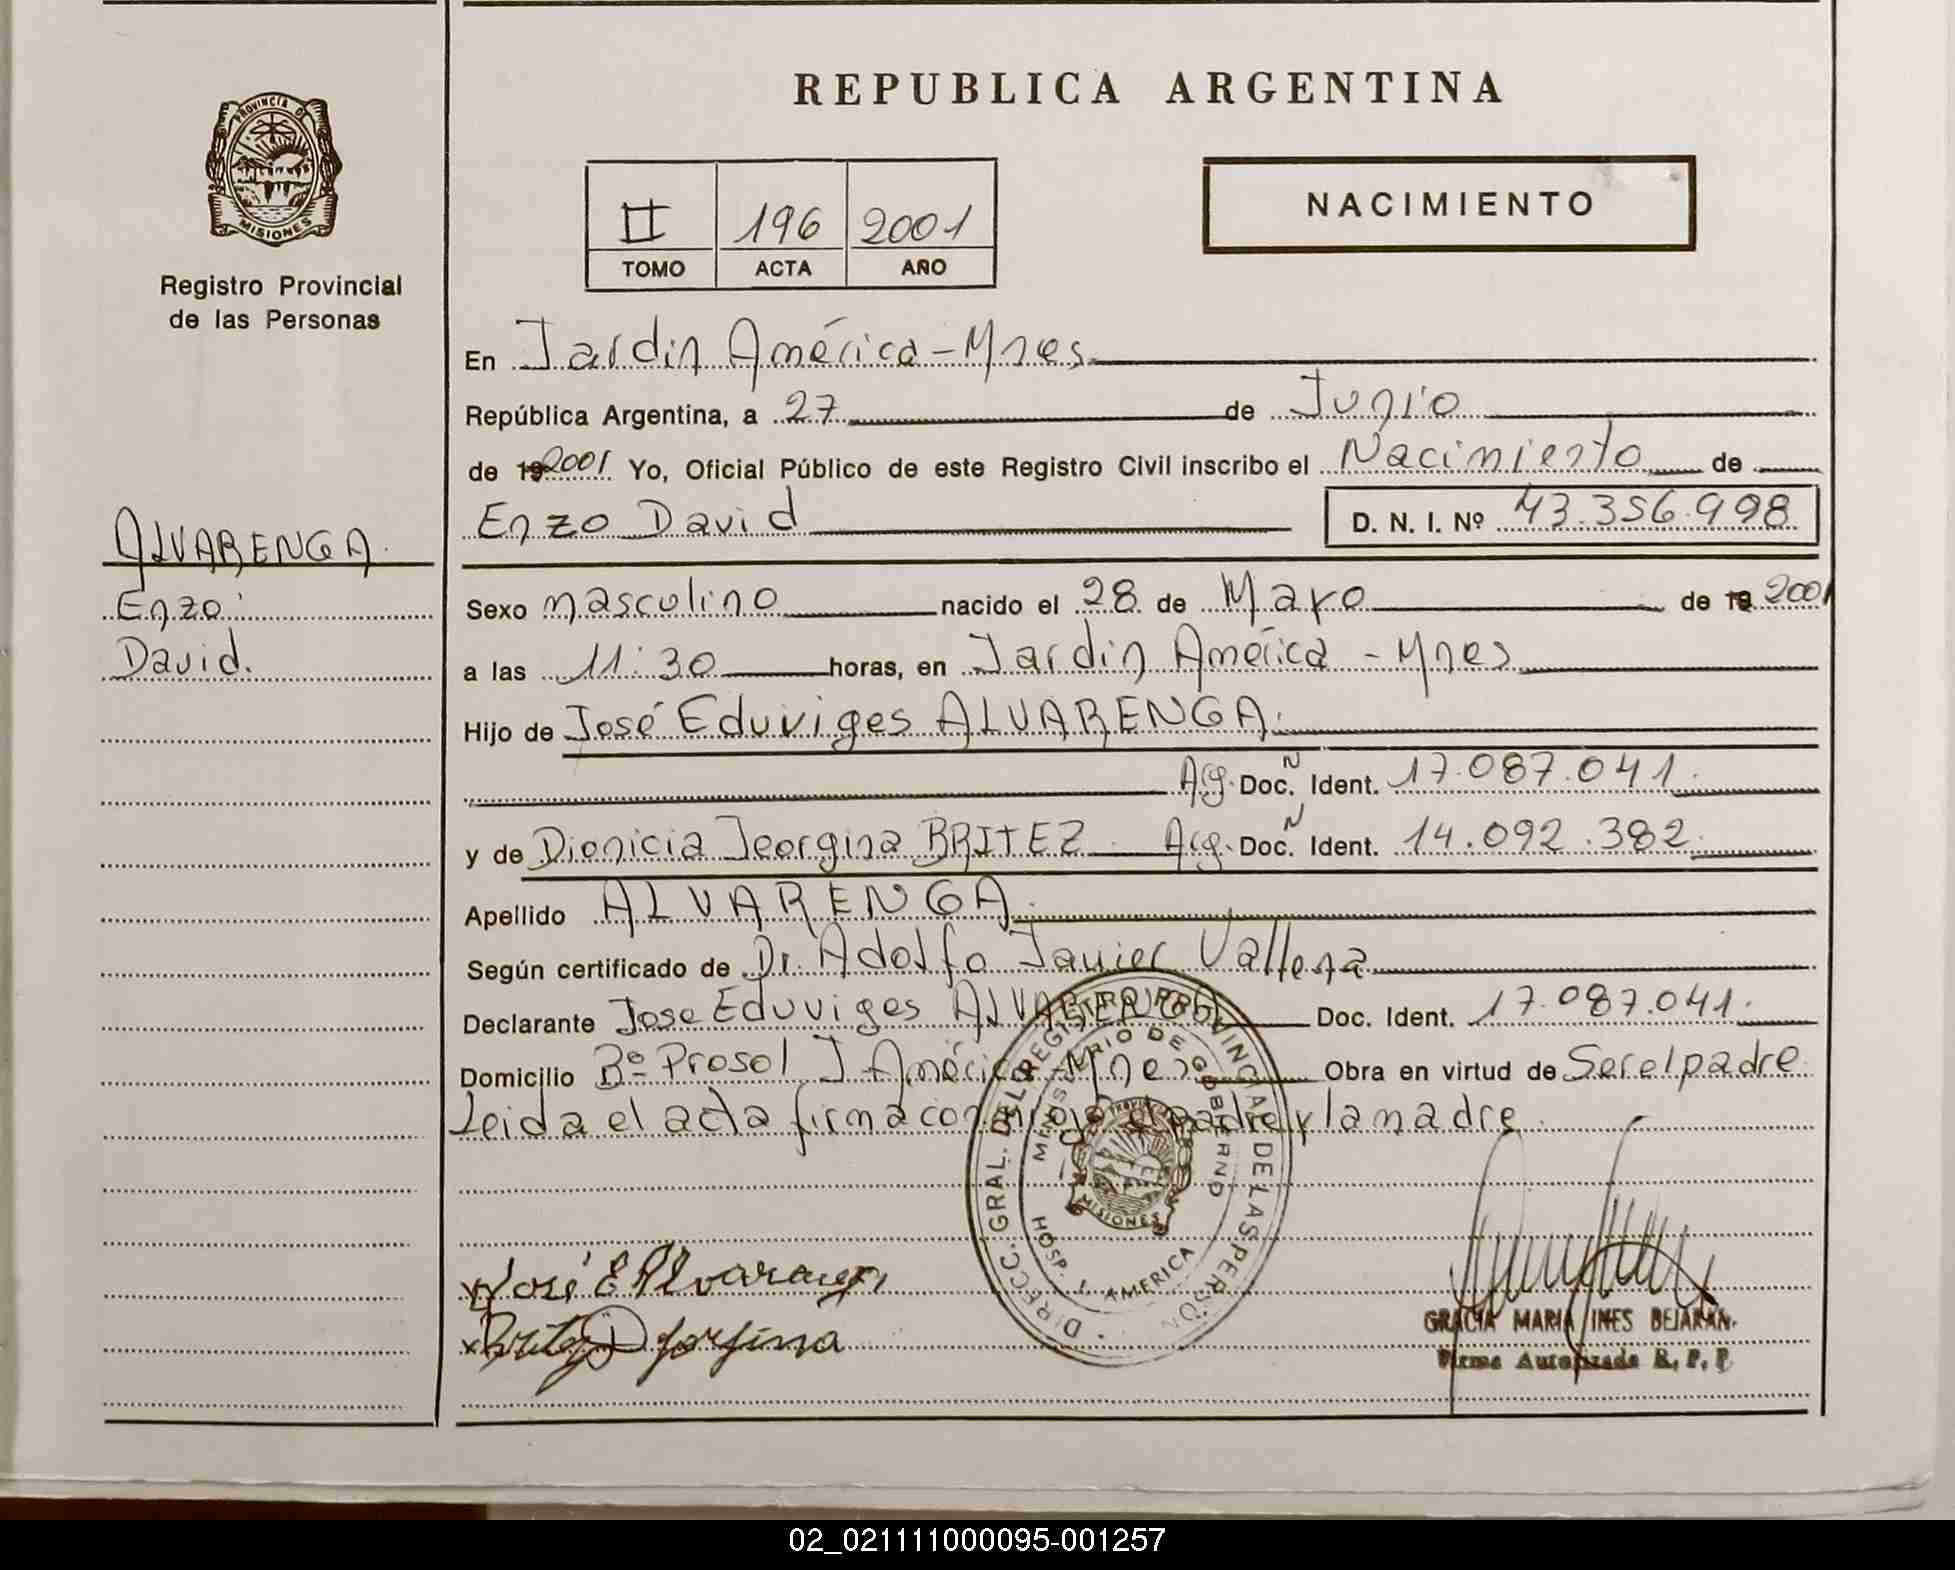 REPUBLICA ARGENTINA
PROVINCIA DE
MISIONES
Registro Provincial
de las Personas
II 196 2001
TOMO ACTA AÑO
NACIMIENTO
En Jardin América - Mnes
República Argentina, a 27 de Junio
de 19 2001 Yo, Oficial Público de este Registro Civil inscribo el Nacimiento de
Enzo David D. N. I. Nº 43.356.998
ALVARENGA
Enzo
David.
Sexo masculino nacido el 28 de Mayo de 19 2001
a las 11:30 horas, en Jardin América - Mnes
Hijo de José Eduviges ALVARENGA.
Arg. Doc. N Ident. 17.087.041.
y de Dionicia Jeorgina BRITEZ Arg. Doc. N Ident. 14.092.382.
Apellido ALVARENGA.
Según certificado de Dr. Adolfo Javier
Declarante Jose Eduviges ALVARENGA Doc. Ident. 17.087.041.
Domicilio Bº Prosol J América - Mnes Obra en virtud de Ser el padre
Leida el acta firma conmigo el padre y la madre.
DIRECC. GRAL. DEL REGISTRO PROVINCIAL DE LAS PERSONAS
MINISTERIO DE GOBIERNO
HOSP. J. AMERICA
MISIONES
x José E Alvarenga
x Britez D Jorjina
GRACIA MARIA INES BEJARAN.
Firma Autorizada R. P. P
02_021111000095-001257